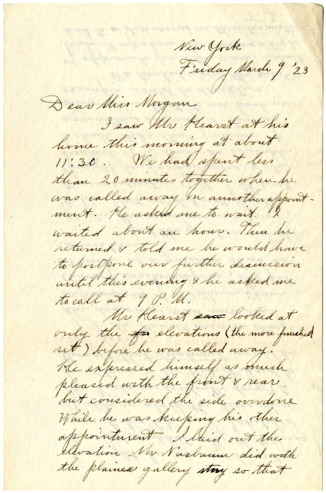 New York
Friday March 9 '23
Dear Miss Morgan
I saw Mr Hearst at his
home this morning at about
11:30. We had spent less
than 20 minutes together when he
was called away on annother appoint-
ment. He asked me to wait. I
waited about an hour. Then he
returned & told me he would have
to postpone our further discussion
until this evening & he asked me
to call at 9 P.M.
Mr Hearst saw looked at
only the elevations (the more finished
set) before he was called away.
He expressed himself as much
pleased with the front & rear
but considered the side overdone
While he was keeping his other
appointment I laid out the
elevation Mr Nusbaum did with
the plainer gallery story so that